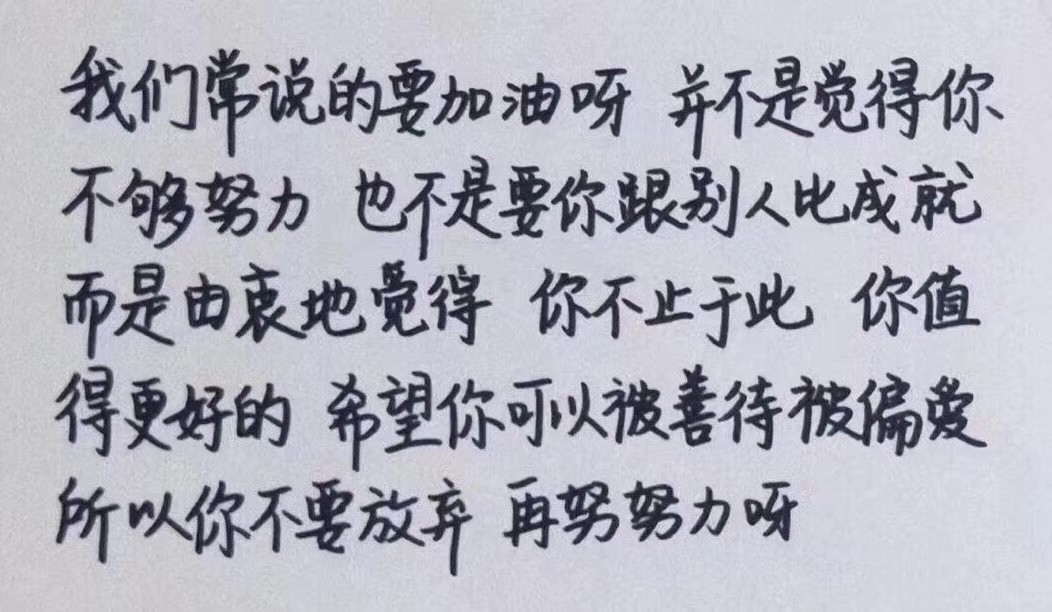 我们常说的要加油呀 并不是觉得你
不够努力 也不是要你跟别人比成就
而是由衷地觉得 你不止于此 你值
得更好的 希望你可以被善待被偏爱
所以你不要放弃 再努努力呀